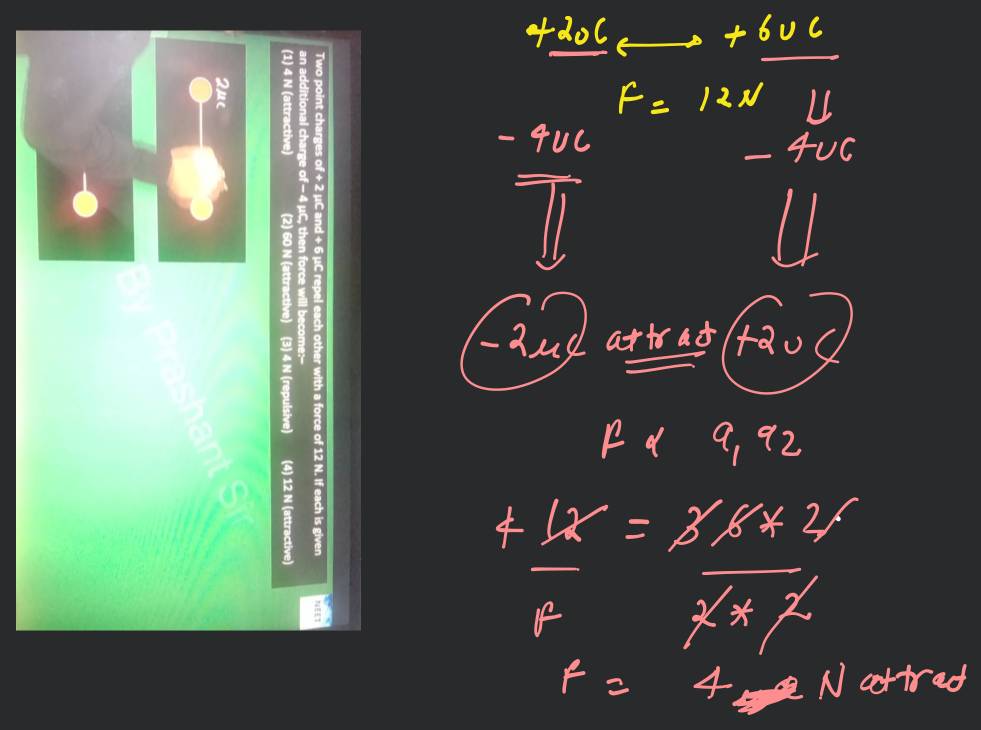 Two point charges of + 2 μC and + 6 μC repel each other with a force of 12 N. If each is given
an additional charge of – 4 μC, then force will become:–
(1) 4 N (attractive) (2) 60 N (attractive) (3) 4 N (repulsive) (4) 12 N (attractive)
2μc
By Prashant Sir
NEET
+2uC ⟷ +6UC
F = 12N
-4UC -4UC
-2μC attract +2UC
F α q1 q2
+12 = 36*2
F 2*2
F = 4 N attract